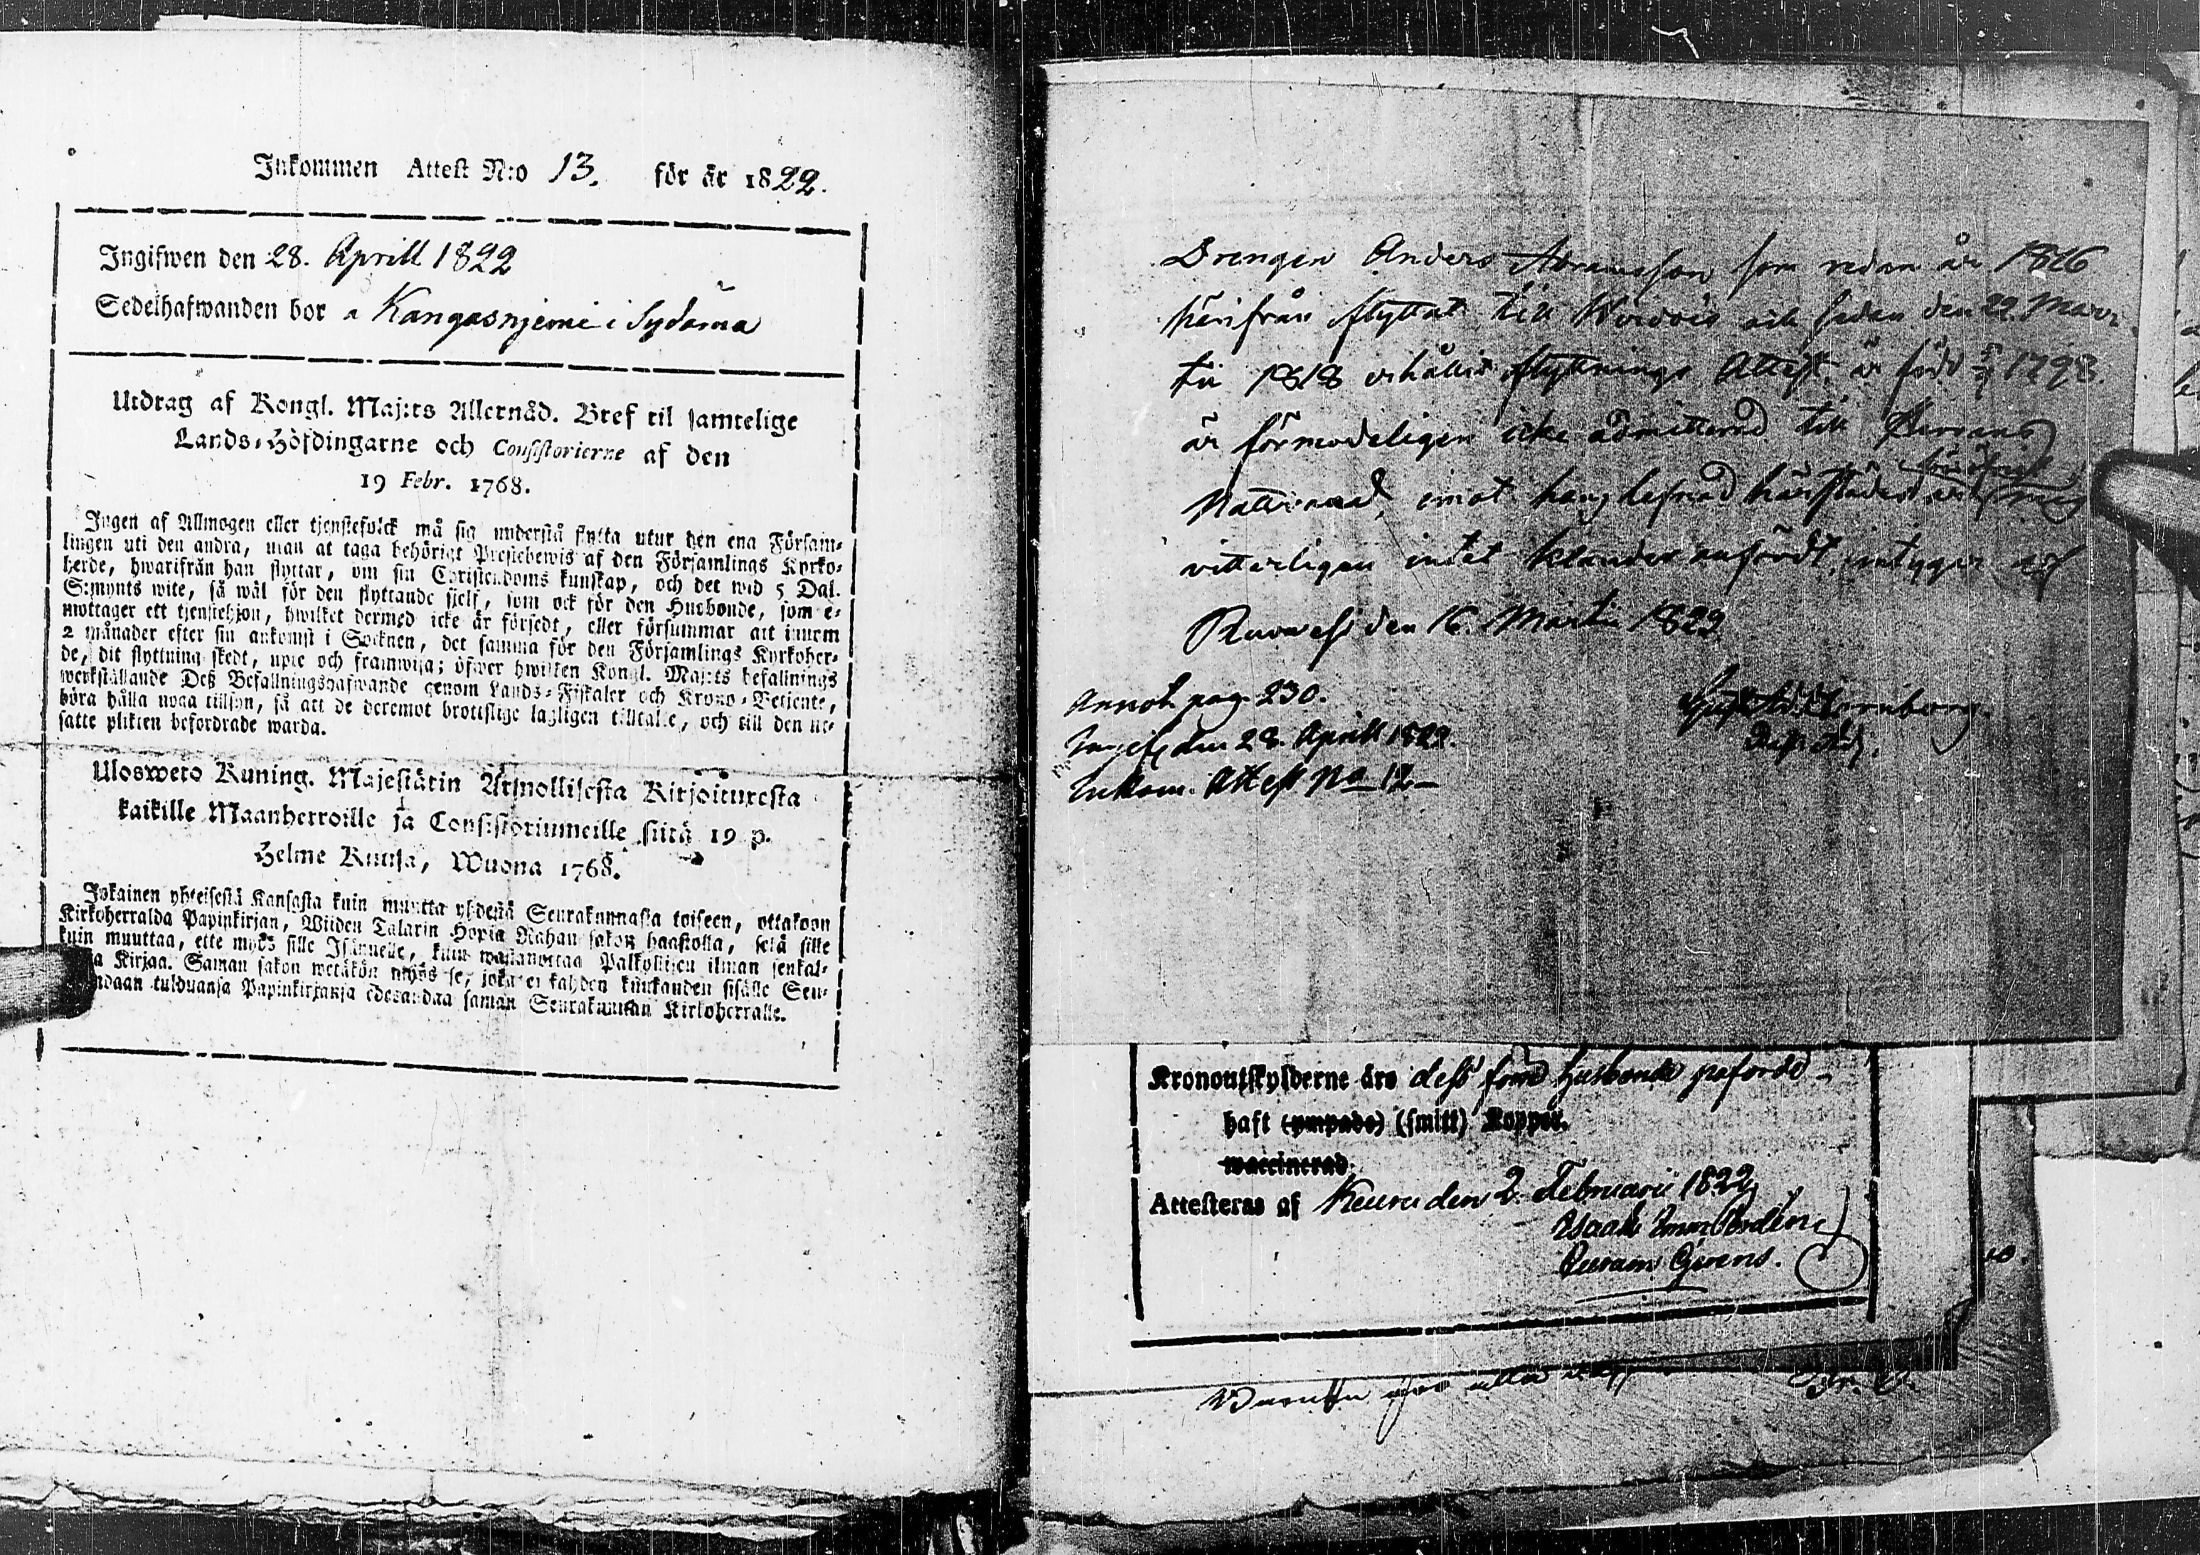 Inkommen Attest N:o 13. för år 1822.
Ingifwen den 28. Aprill 1822
Sedelhafwanden bor a Kangasnjemi i Sydäma
Utdrag af Kongl. Maj:ts Allernåd. Bref til samtelige
Lands-Höfdingarne och Consistorierne af den
19 Febr. 1768.
Ingen af Allmogen eller tjenstefolck må sig understå flytta utur den ena Försam-
lingen uti den andra, utan at taga behörigt Prestebewis af den Församlings Kyrko-
herde, hwarifrån han flyttar, om sin Christendoms kunskap, och det wid 5 Dal.
S:mynts wite, så wäl för den flyttande sielf, som ock för den Husbonde, som e-
mottager ett tjenstehjon, hwilket dermed icke är försedt, eller försummar att innom
2 månader efter sin ankomst i Socknen, det samma för den Församlings Kyrkoher-
de, dit flyttning skedt, upte och framwisa; öfwer hwilken Kongl. Maj:ts befallnings
werkställande Deß Befallningshafwande genom Lands-Fiskaler och Krono-Betiente,
böra hålla noga tillsyn, så att de deremot brottslige lagligen tilltalte, och till den ut-
satte plikten befordrade warda.
Ulosweto Kuning. Majestätin Armollisesta Kirjoituxesta
kaikille Maanherroille ja Consistoriumeille siitä 19 p.
Helme Kuusa, Wuona 1768.
Jokainen yhteisestä Kansasta kuin muutta yhdestä Seurakunnasta toiseen, ottakoon
Kirkoherralda Papinkirjan, Wiiden Talarin Hopia Rahan sakon haastolla, sekä sille
kuin muuttaa, ette myös sille Isännelle, kuin wastanottaa Palkollisen ilman senkal-
Kirjaa. Saman sakon wetäkön myös se, joka ei kahden kuukauden sisälle Seu-
ndaan tulduansa Papinkirjansa edesandaa saman Seurakunnan Kirkoherralle.
Drengen Anders Abramsson som redan år 1816
härifrån flyttat till Wirdois och sedan den 22. Mar
tii 1818 erhållit flyttnings Attest, är född 1798.
är förmodeligen icke admitterad till
Nattward, emot hans lefnad härstädes
vitterligen intet klander anfördt, intygar
Ruovesi den 16. Martii 1822
Annot. pag. 230.
Ingif. den 28. Aprill 1822.
Inkom. Attest No 12
Kronoutskylderne äro dess förra Husbonde påförde
haft (ympade) (smitt) Koppor.
waccinerad.
Attesteras af Keuru den 2. Februarii 1822